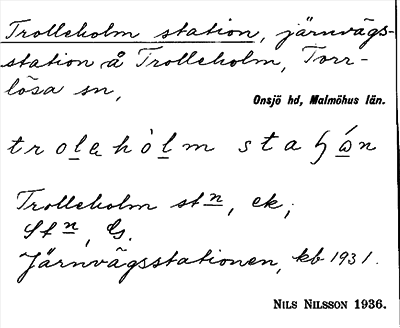 Trolleholm station, järnvägs-
station å Trolleholm, Torr-
lösa sn,
Onsjö hd, Malmöhus län.
troleholm staɧωn
Trolleholm stn, ek;
Stn,
Järnvägsstationen, kb 1931.
NILS NILSSON 1936.